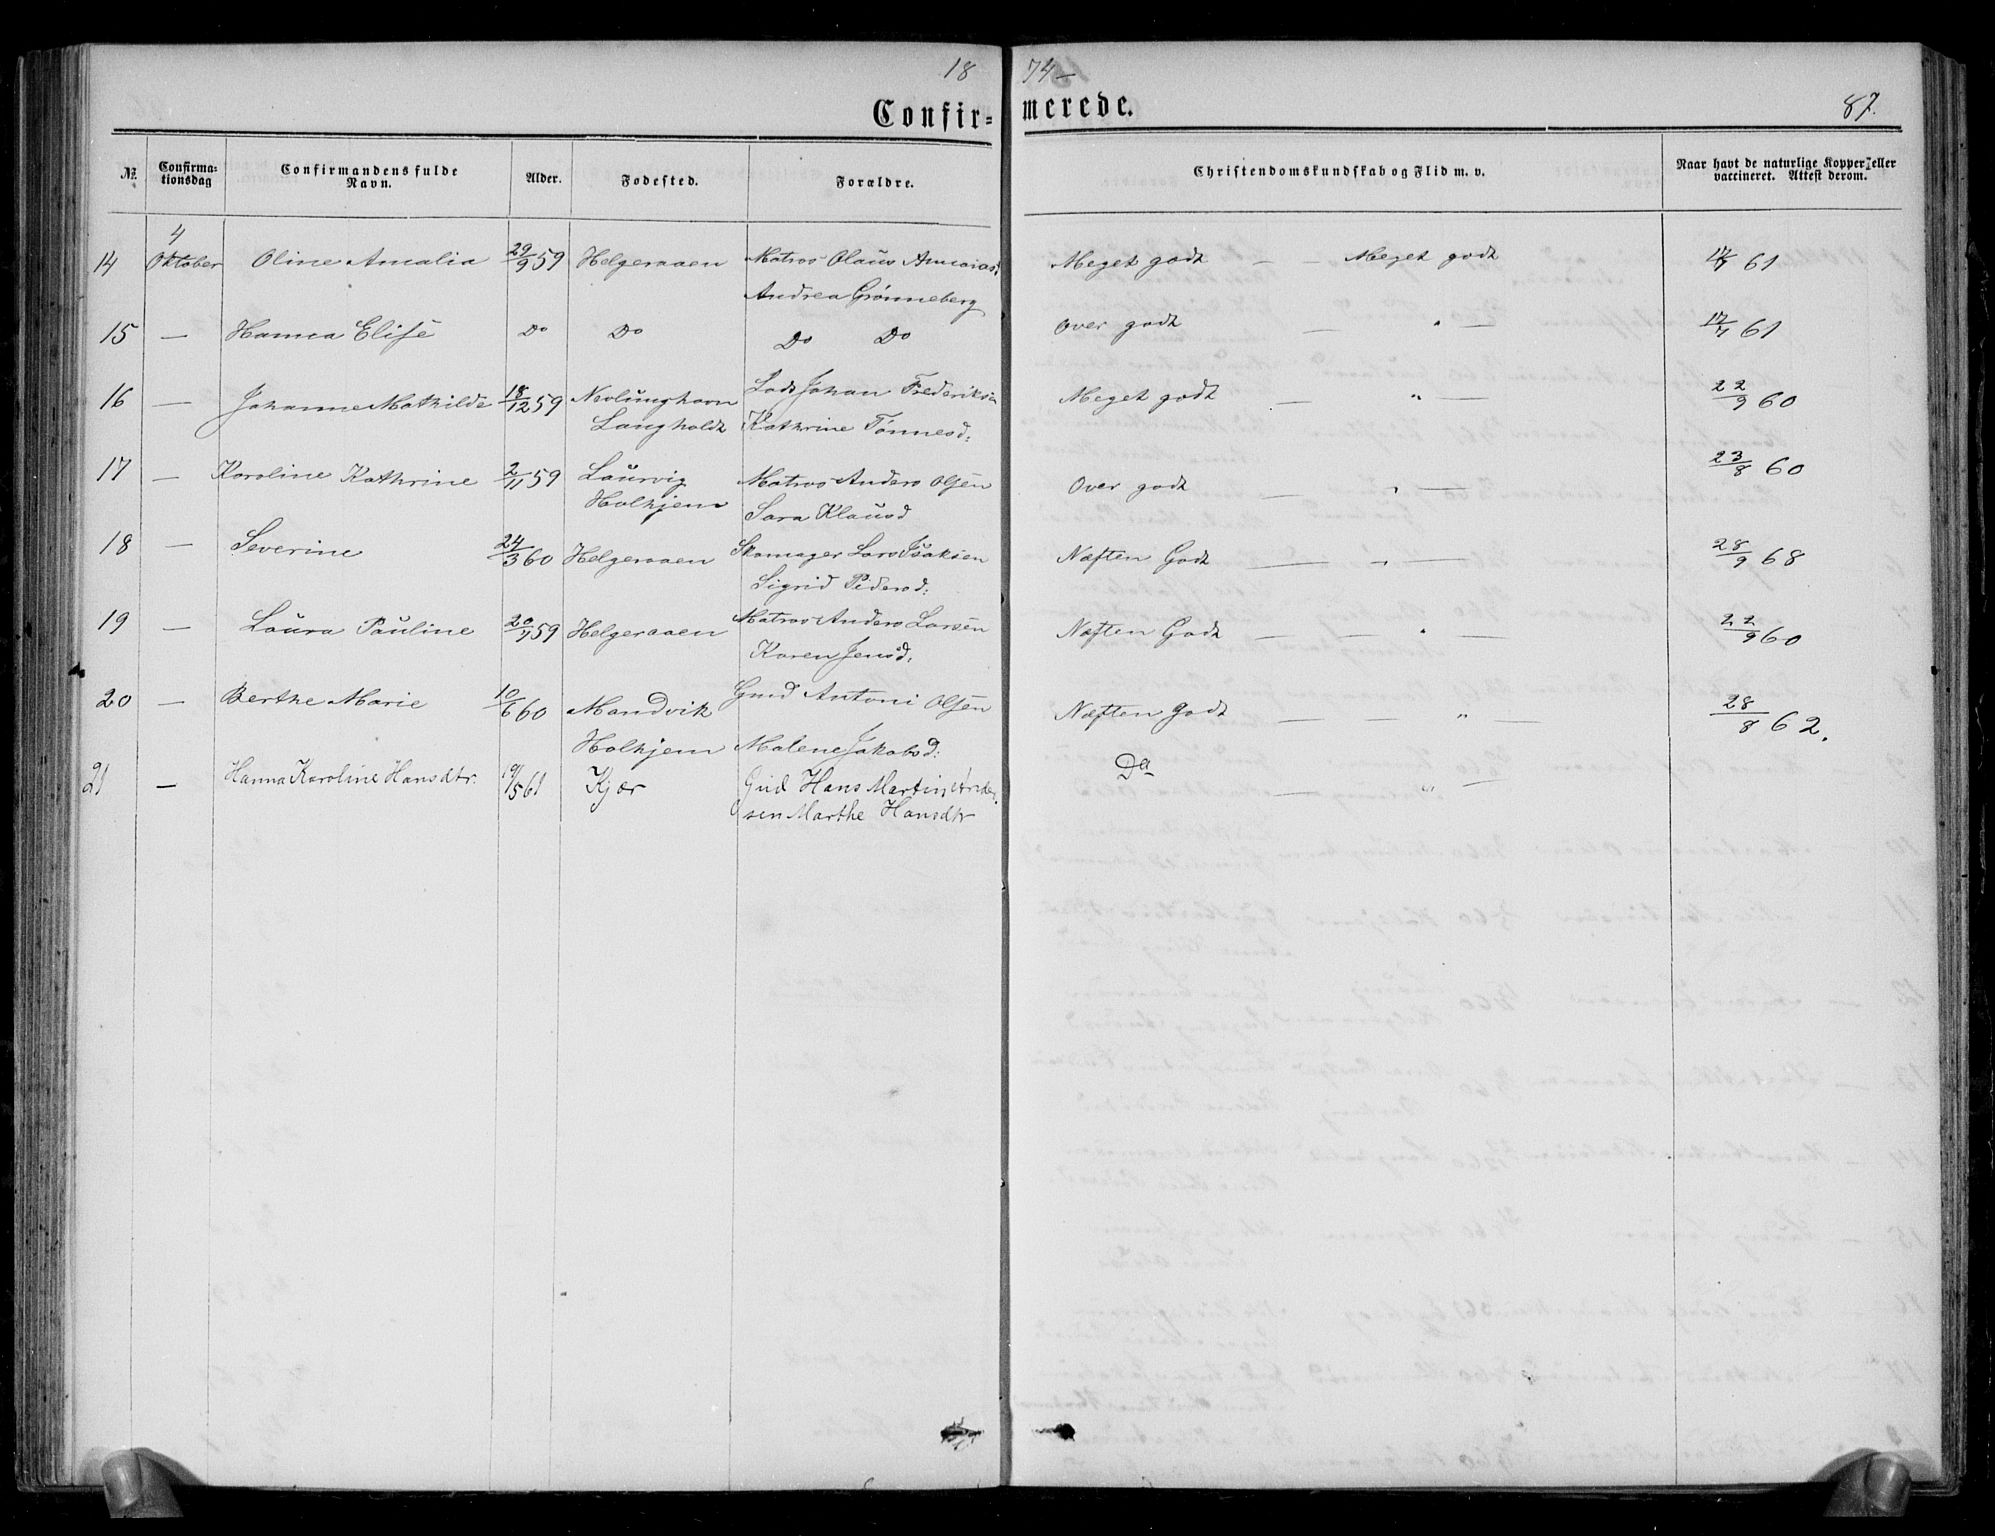 18 74-
Confir= merede. 87.
№ Confirma- Confirmandens fulde Alder. Fødested. Forældre. Christendomskundskab og Flid m. v. Naar havt de naturlige Kopper eller
tionsdag Navn. vaccineret. Attest derom.
4
14 Oktober Oline Amalia 29/9 59 Helgeraaen Matros Olaus Meget godt — — Meget godt 17/7 61
Andrea Grønneberg
15 — Hanna Elise Do Do Do Do Over godt — " — 17/7 61
16 — Johanne Mathilde 18/12 59 Nevlunghavn Lods Johan Frederiksen Meget godt — " — 22/9 60
Langholdt Kathrine Tønnesd:
17 — Karoline Kathrine 2/11 59 Laurvig Matros Anders Olsen Over godt — " — 23/8 60
Holkjem Sara Klausd
18 — Severine 24/3 60 Helgeraaen Skomager Lars Isaksen Næsten Godt — " — 28/9 68
Sigrid Pedersd:
19 — Laura Pauline 20/11 59 Helgeraaen Matros Anders Larsen Næsten Godt — — " — 22/9 60
Karen Jensd:
20 — Berthe Marie 10/6 60 Mandvik Gmd Antoni Olsen Næsten godt — — " — 28/8 62.
Holkjem Malene Jakobsd:
21 — Hanna Karoline Hansdtr. 19/5 61 Kjær Gmd Hans Martin Ander- Do — " —
sen Marthe Hansdtr